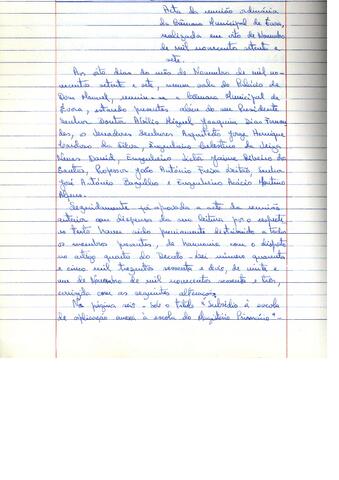 Acta da reunião ordinária
da Câmara Municipal de Évora,
realizada em oito de Novembro
de mil novecentos setenta e
sete.
Aos oito dias do mês de Novembro de mil no-
vecentos setenta e sete, numa sala do Palácio de
Dom Manuel, reuniu-se a Câmara Municipal de
Évora, estando presentes além do seu Presidente
Senhor Doutor Abílio Miguel Joaquim Dias Fernan-
des, os Vereadores Senhores Arquitecto Jorge Henrique
da Silva, Engenheiro Celestino
Neves David, Engenheiro Jaime Ribeiro dos
Santos, Professor João António Leitão, Senhor
José António e Engenheiro Acácio
Seguidamente foi aprovada a acta da reunião
anterior com dispensa da sua leitura por o respecti-
vo texto haver sido previamente distribuído a todos
os membros presentes, de harmonia com o disposto
no artigo quarto do Decreto-Lei número quarenta
e cinco mil trezentos sessenta e dois, de vinte e
um de Novembro de mil novecentos sessenta e três,
corrigida com as seguintes alterações:
Na página seis - Sob o título "Subsídio à escola
de aplicação anexa à escola do Magistério Primário" -